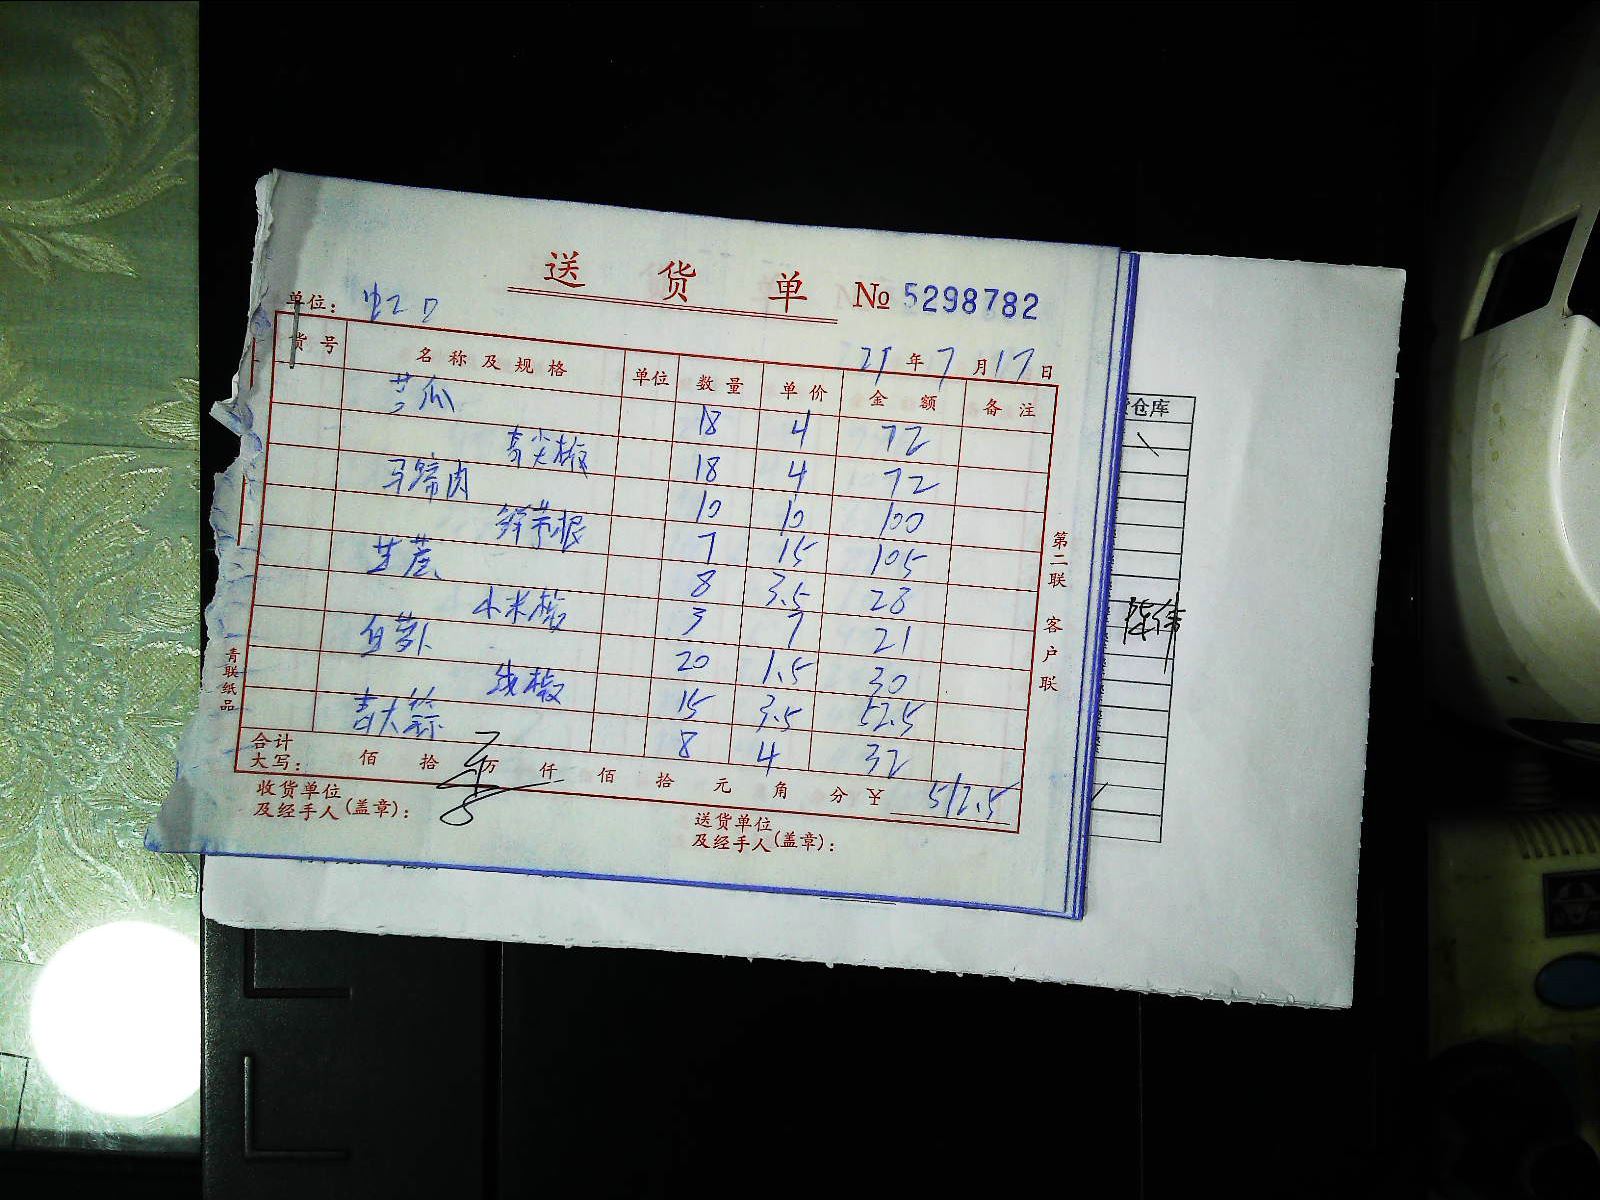 送货单 № 5298782
单位: 虹口
21年7月17日
货号 名称及规格 单位 数量 单价 金额 备注
苦瓜 18 4 72
青尖椒 18 4 72
马蹄肉 10 10 100
鲜茅根 7 15 105
8 3.5 28
小米椒 3 7 21
白萝卜 20 1.5 30
线椒 15 3.5 52.5
青大蒜 8 4 32
合计
大写: 佰 拾 万 仟 佰 拾 元 角 分 ¥ 512.5
收货单位
及经手人(盖章):
送货单位
及经手人(盖章):
第二联 客户联
青联纸品
仓库